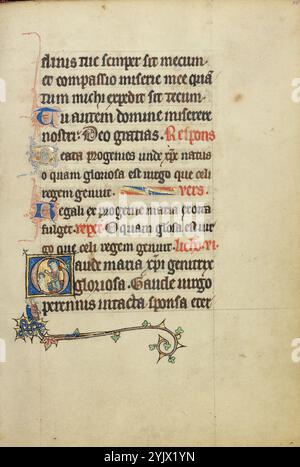 amus tue semper sit mecum
et compassio miserie mee quā
tum michi expedit sit tecum.
Tu autem domine miserere
nostri. Deo gratias. Respons
Beata progenies unde xp̄c natus
o quam gloriosa est uirgo que celi
regem genuit. vers.
Regali ex progenie maria exorta
fulget. repet. O quam glosa. est uir
go que celi regem genuit. lectio. vi.
Gaude maria xp̄i genitrix
gloriosa. Gaude uirgo
perennis intacta sponsa eter
alamy
Image ID: 2YJX1YN
www.alamy.com